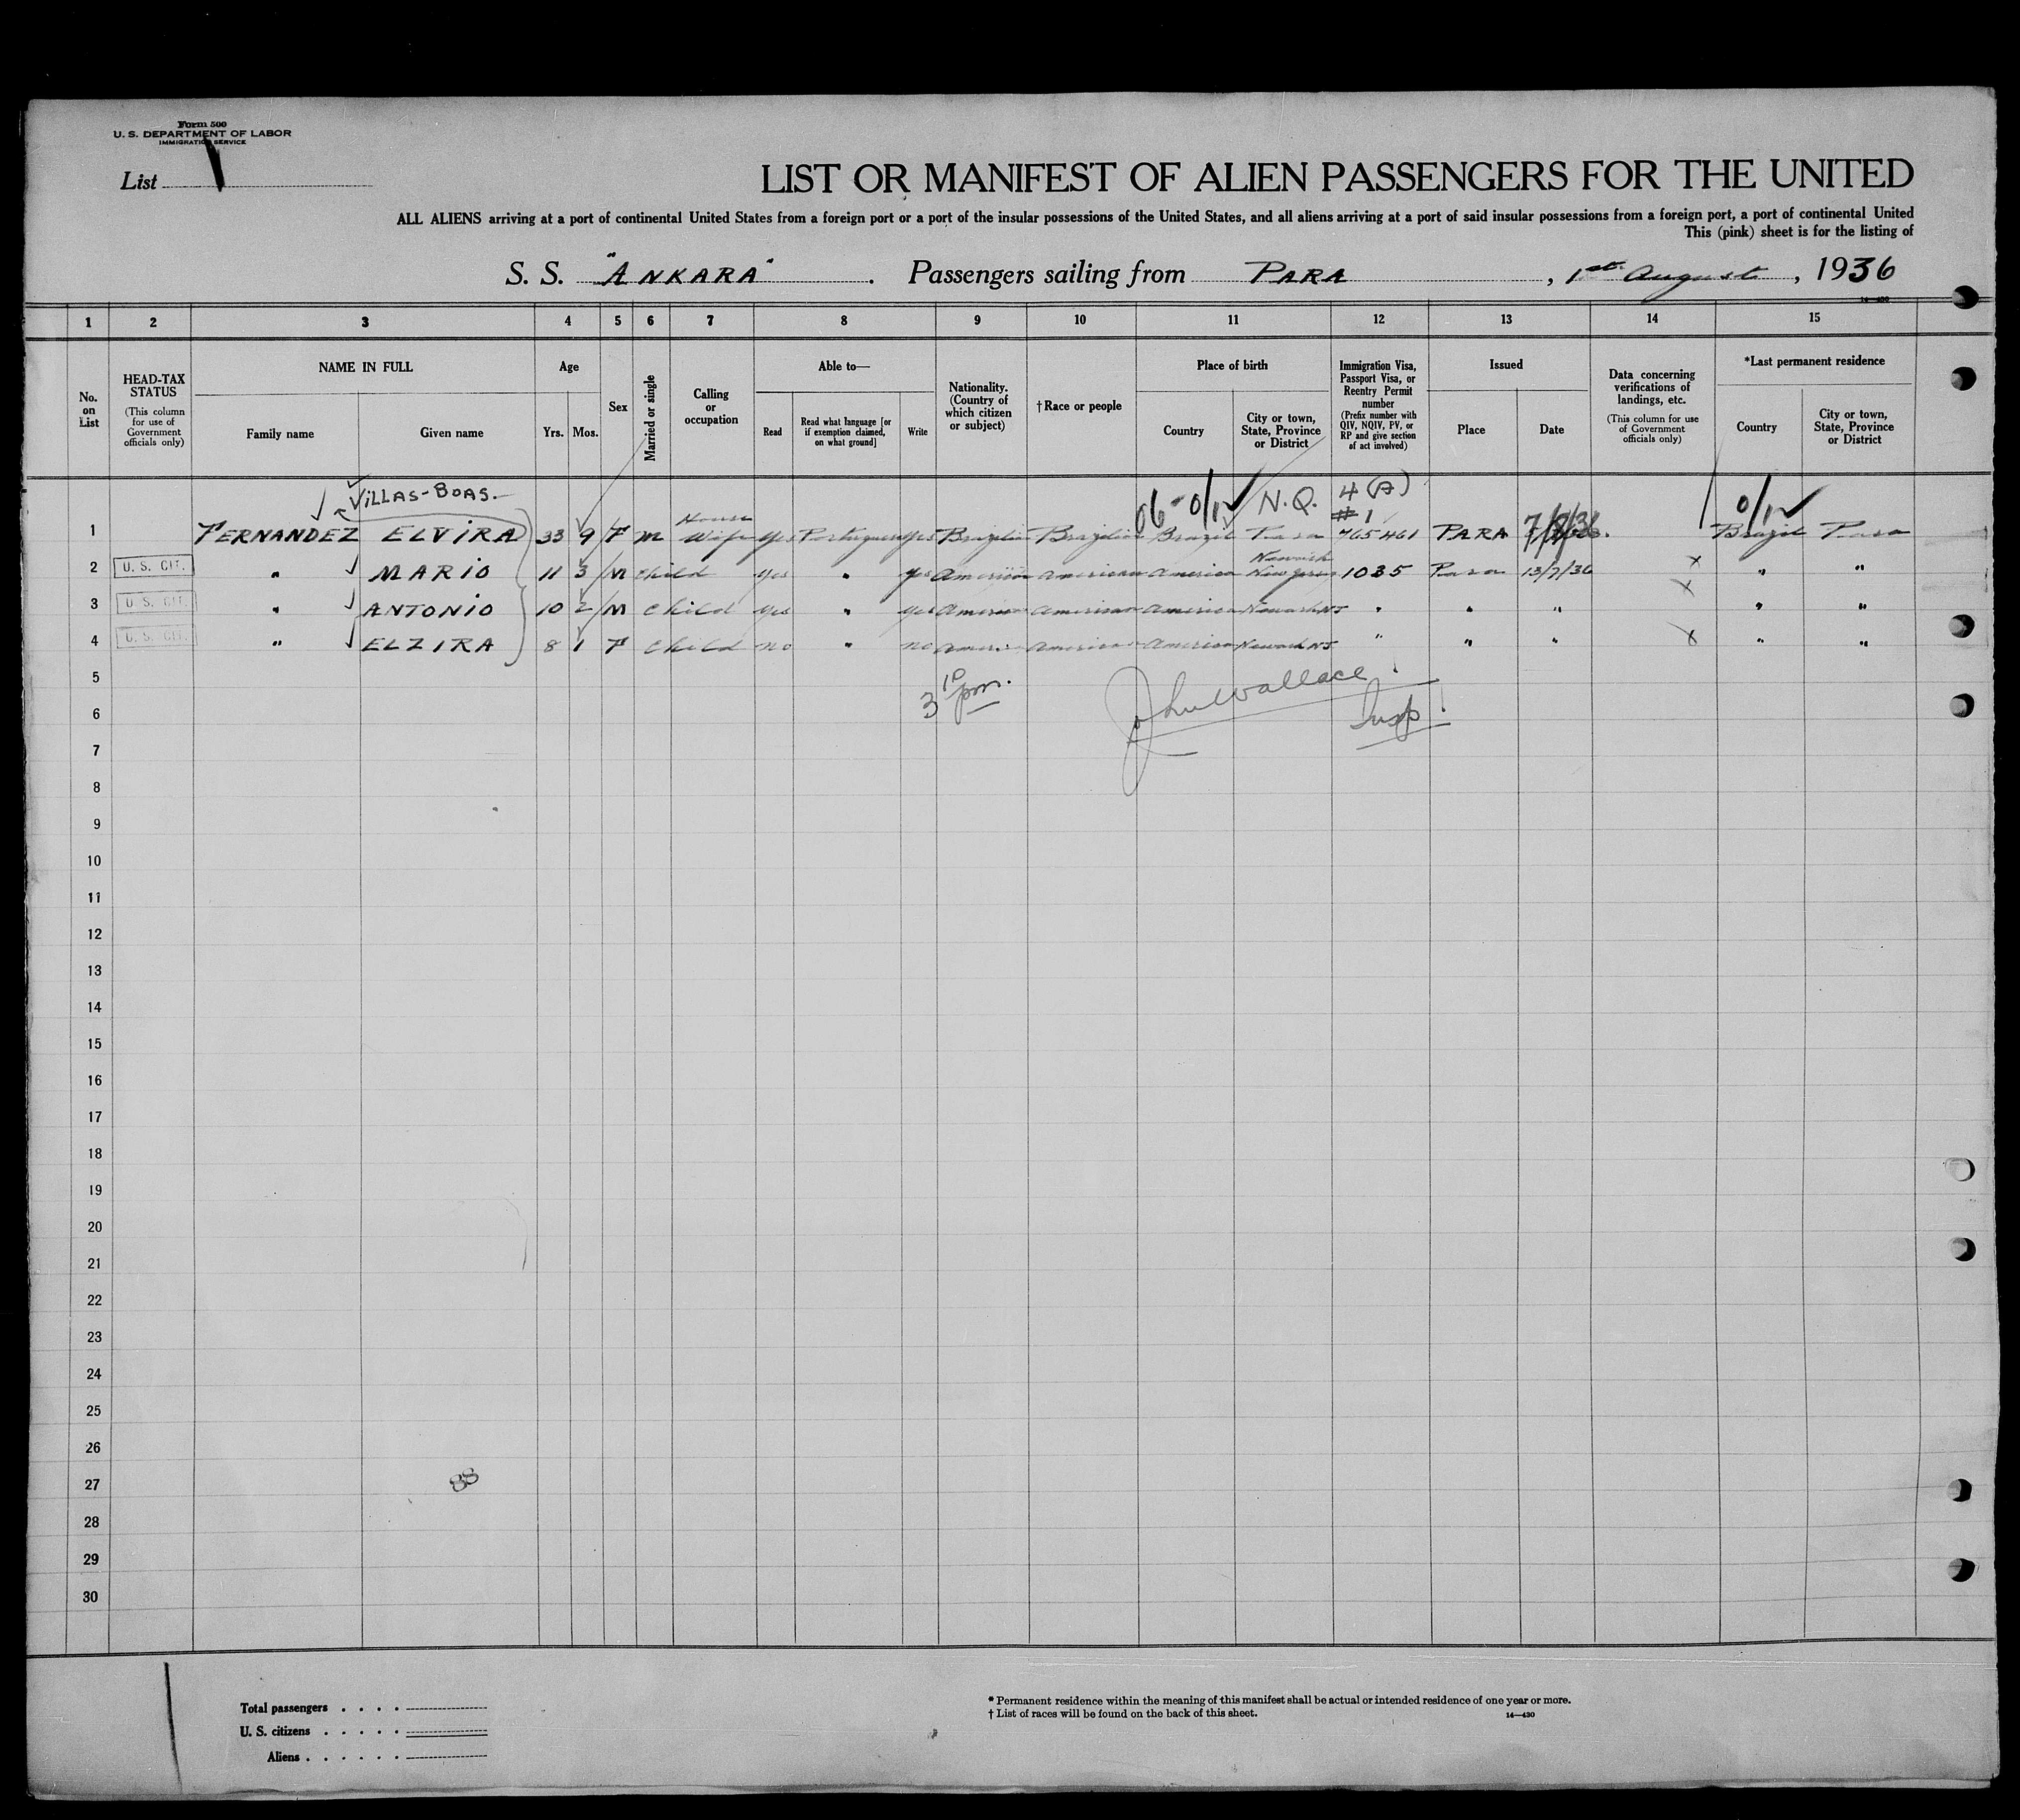 Form 500
U. S. DEPARTMENT OF LABOR
IMMIGRATION SERVICE
List 1
LIST OR MANIFEST OF ALIEN PASSENGERS FOR THE UNITED
ALL ALIENS arriving at a port of continental United States from a foreign port or a port of the insular possessions of the United States, and all aliens arriving at a port of said insular possessions from a foreign port, a port of continental United
This (pink) sheet is for the listing of
S. S. "ANKARA" . Passengers sailing from PARA , 1st August , 1936
14—430
1 2 3 4 5 6 7 8 9 10 11 12 13 14 15
No. on List
HEAD-TAX STATUS (This column for use of Government officials only)
NAME IN FULL
Family name Given name
Age
Yrs. Mos.
Sex
Married or single
Calling or occupation
Able to—
Read
Read what language [or if exemption claimed, on what ground]
Write
Nationality. (Country of which citizen or subject)
† Race or people
Place of birth
Country
City or town, State, Province or District
Immigration Visa, Passport Visa, or Reentry Permit number (Prefix number with QIV, NQIV, PV, or RP and give section of act involved)
Issued
Place Date
Data concerning verifications of landings, etc. (This column for use of Government officials only)
*Last permanent residence
Country
City or town, State, Province or District
VILLAS-BOAS. 06-0/12 N.Q. 4 (A) # 1 0/12
1 FERNANDEZ ELVIRA 33 9 F M House Wife yes Portuguese yes Brazilian Brazilian Brazil Para 765461 PARA Brazil Para
2 U. S. CIT. " MARIO 11 3 M child yes " yes American American America Newark New Jersey 1035 Para 13/7/36 x " "
3 U. S. CIT. " ANTONIO 10 2 M child yes " yes American American America Newark NJ " " " x " "
4 U. S. CIT. " ELZIRA 8 1 F child no " no American American America Newark NJ " " " x " "
5 3 10 pm. John Wallace
6 Insp.
7
8
9
10
11
12
13
14
15
16
17
18
19
20
21
22
23
24
25
26
27 88
28
29
30
Total passengers . . . .
U. S. citizens . . . . .
Aliens . . . . . .
* Permanent residence within the meaning of this manifest shall be actual or intended residence of one year or more.
† List of races will be found on the back of this sheet. 14—430